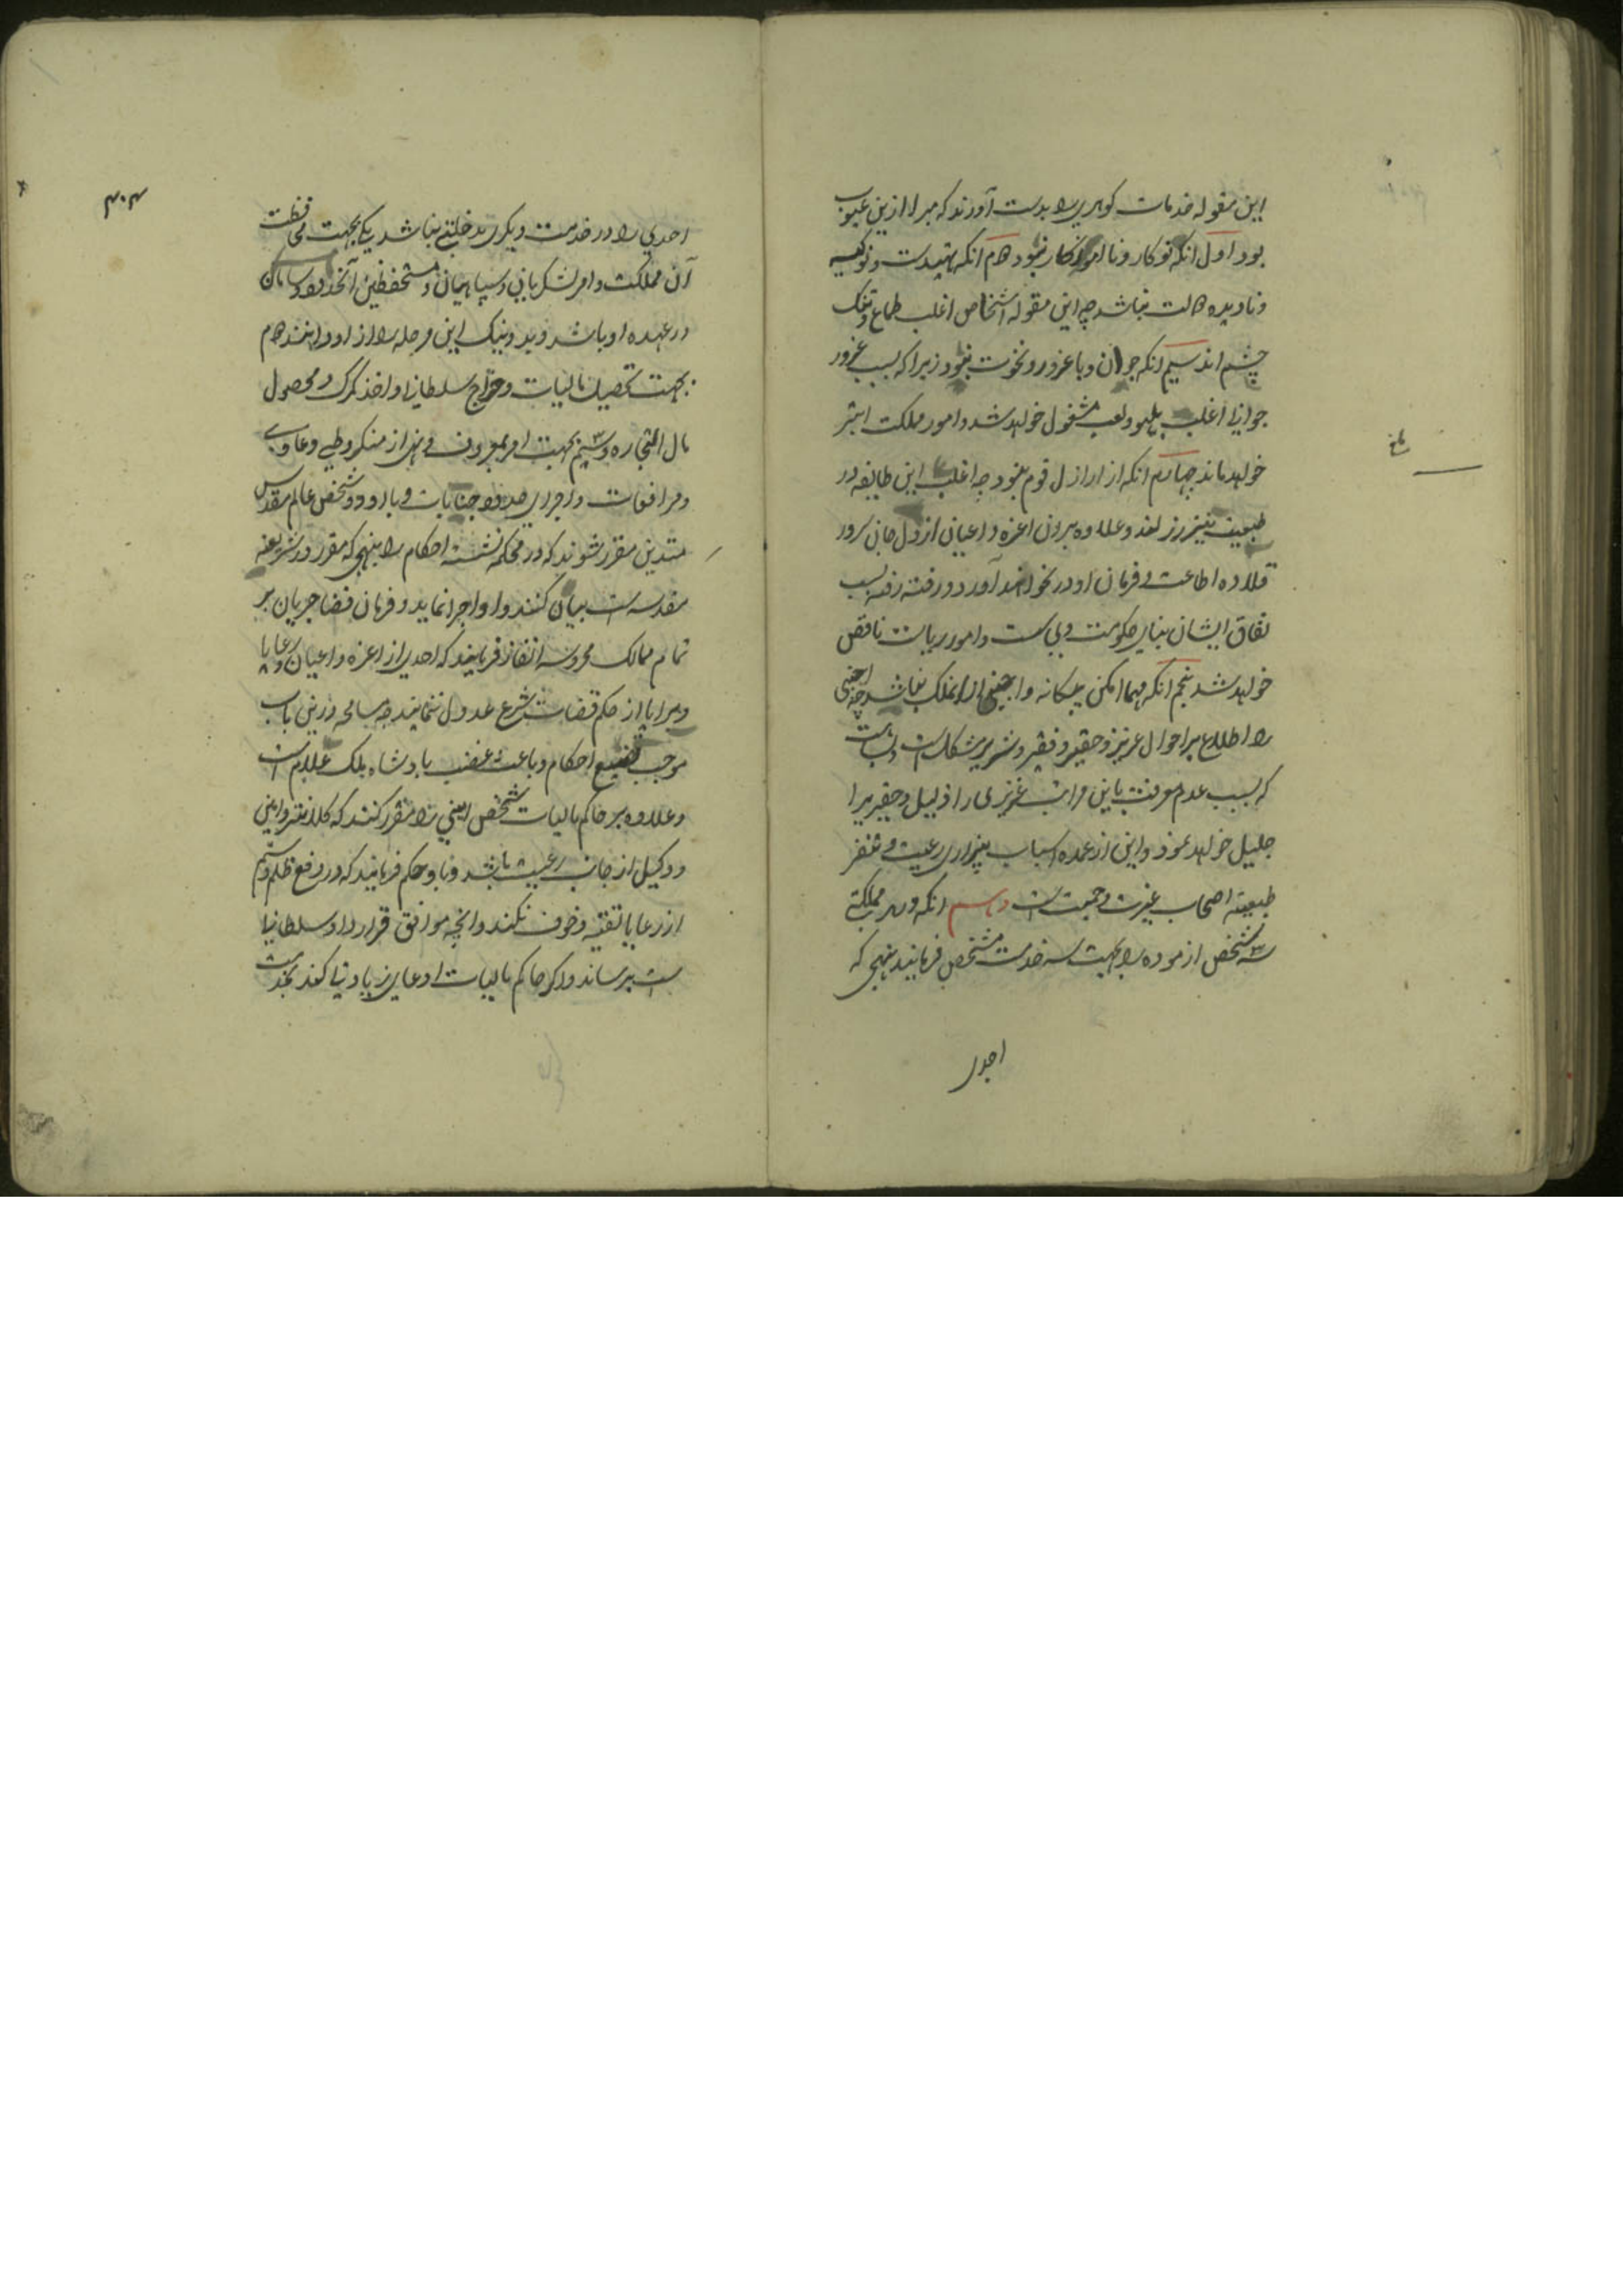 این مقوله خدمات کوهری را بدست آورند که مبرا ازین عیوب
بود اول انکه نوکار و ناازموده کار نبود دهم انکه تهیدست و نوکیسه
و نادیده دولت نباشد چه این مقوله اشخاص اغلب طماع و تنک
چشم اند سیم انکه جوان و با غرور و نخوت نبود زیرا که بسبب غرور
جوانی اغلب بلهو و لعب مشغول خواهد شد و امور مملکت ابتر
خواهد ماند چهارم انکه از اراذل قوم نبود چه اغلب این طایفه در
طبیعت نیز رذل اند و علاوه بران اعزه و اعیان از دل و جان سر در
قلاده اطاعت و فرمان او در نخواهند آورد و رفته رفته بسبب
نفاق ایشان بنای حکومت و امور ریاست ناقص
خواهد شد پنجم انکه مهما امکن بیکانه و اجنبی از انملک نباشد چه اجنبی
را اطلاع بر احوال عزیز و حقیر و فقیر و شریر مشکل است و بسا هست
که بسبب عدم معرفت باین مراتب عزیزی را ذلیل و حقیری را
جلیل خواهد نمود و این از عمده اسباب بیزاری رعیت و تنفر
طبیعت اصحاب غیرت و حمیت است انکه در هر مملکتی
سه شخص ازموده را بجهت سه خدمت مشخص فرمایند بنهجی که
احدی
۴۰۴
احدی را در خدمت دیکری مداخلتی نباشد یکی بجهت محافظت
آن مملکت و امر لشکریان و سپاهیان و مستحفظین آنحدود و سامان
در عهده او باشد و بد و نیک این مرحله را از او دانند دهم
بجهت تحصیل مالیات و خراج سلطانی و اخذ کمرک و محصول
مال التجاره و سیم بجهت امر بمعروف و نهی از منکر و طی دعاوی
و مرافعات و اجرای حدود جنایات و با او دو شخص عالم مقدس
متدین مقرر شوند که در محکمه نشسته احکام را بنهجی که مقرر در شریعه
مقدسه است بیان کنند و او اجرا نماید و فرمان قضا جریان بر
تمام ممالک محروسه انفاذ فرمایند که احدی از اعزه و اعیان و رعایا
و برایا از حکم قضات شرع عدول ننمایند چه مسامحه درین باب
موجب تضییع احکام و باعث غضب پادشاه ملک علام است
و علاوه بر حاکم مالیات شخص امینی را مقرر کنند که کلانتر و امین
و وکیل از جانب رعیت باشد و باو حکم فرمایند که در رفع ظلم و ستم
از رعایا تقیه و خوف نکند و انچه موافق قرارداد سلطانی
است برساند و اکر حاکم مالیات ادعای زیادتی کند بخدمت